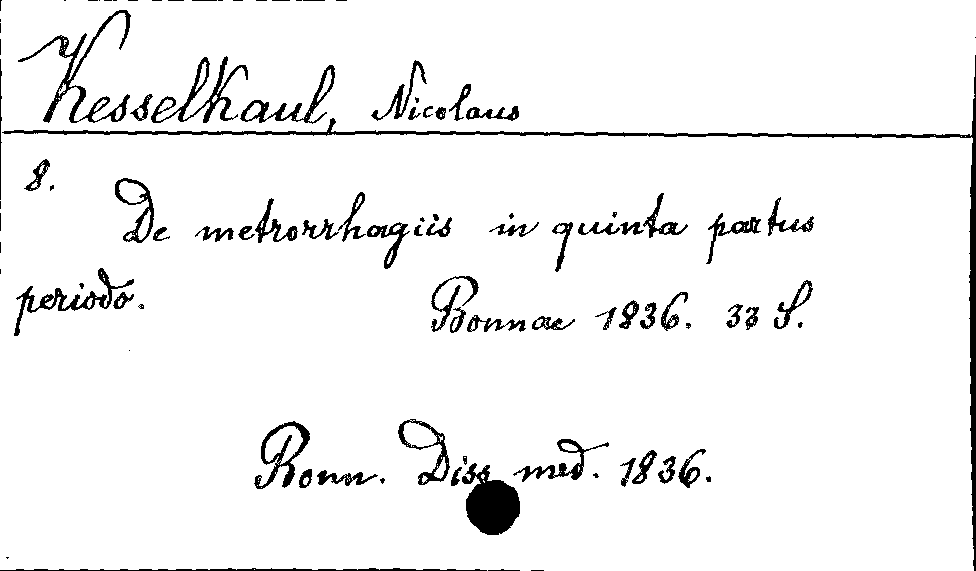 Kesselkaul, Nicolaus
8.
De metrorrhagiis in quinta partus
periodo.
Bonnae 1836. 33 S.
Bonn. Diss med. 1836.